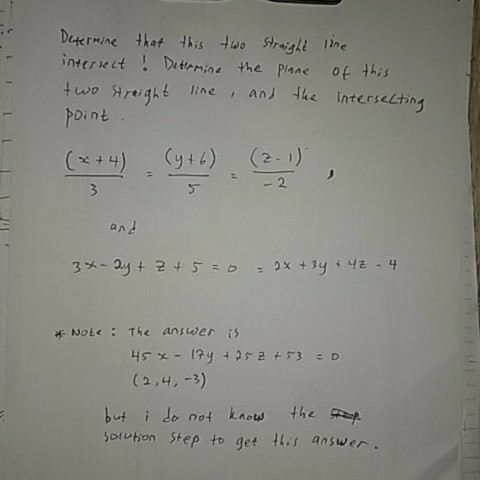 Determine that this two straight line
intersect ! Determine the plane of this
two straight line , and the intersecting
point .
(x+4)/3 = (y+6)/5 = (z-1)/-2 ,
and
3x - 2y + z + 5 = 0 = 2x + 3y + 4z - 4
* Note : The answer is
45x - 17y + 25z + 53 = 0
(2,4,-3)
but i do not know the
solution step to get this answer .